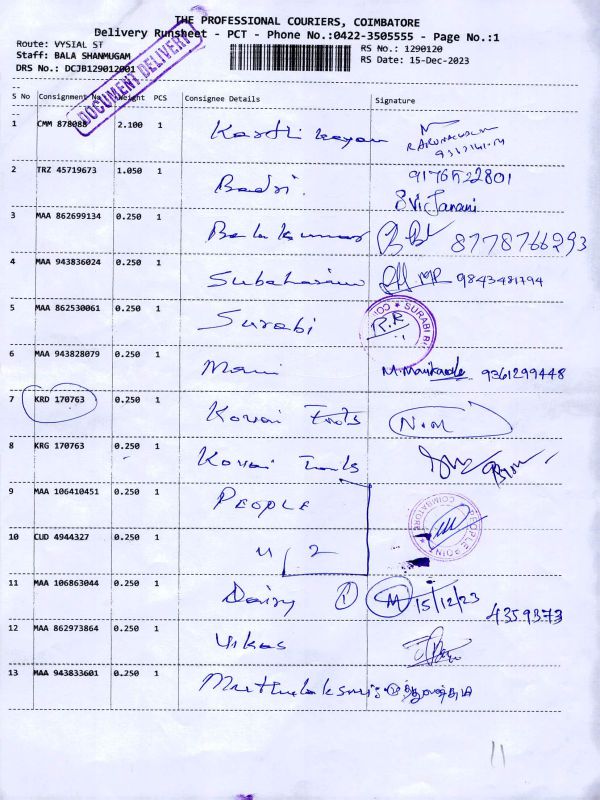 THE PROFESSIONAL COURIERS, COIMBATORE
Delivery Runsheet - PCT - Phone No.:0422-3505555 - Page No.:1
Route: VYSIAL ST
Staff: BALA SHANMUGAM
DRS No.: DCJB129012001
RS No.: 1290120
RS Date: 15-Dec-2023
DOCUMENT DELIVERY
S No Consignment No Weight PCS Consignee Details Signature
1 CMM 878088 2.100 1 Karthikeyan
2 TRZ 45719673 1.050 1 Badri. 9176522801
S.V. Janani
3 MAA 862699134 0.250 1 Balakumar 8778766293
4 MAA 943836024 0.250 1 9843481794
5 MAA 862530061 0.250 1 Surabi R.R SURABI
6 MAA 943828079 0.250 1 Mani M. Manikandan 9361299448
7 KRD 170763 0.250 1 Kovai N.M
8 KRG 170763 0.250 1 Kovai
9 MAA 106410451 0.250 1 PEOPLE PEOPLE POINT COIMBATORE
10 CUD 4944327 0.250 1 " 2
11 MAA 106863044 0.250 1 Dairy 1 M 15/12/23 4359373
12 MAA 862973864 0.250 1 Vikas
13 MAA 943833601 0.250 1 Muthulakshmi
11